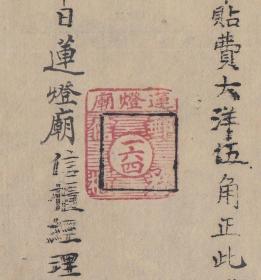 貼費大洋伍角正此
蓮燈廟
一六四
日蓮燈廟信櫃經理